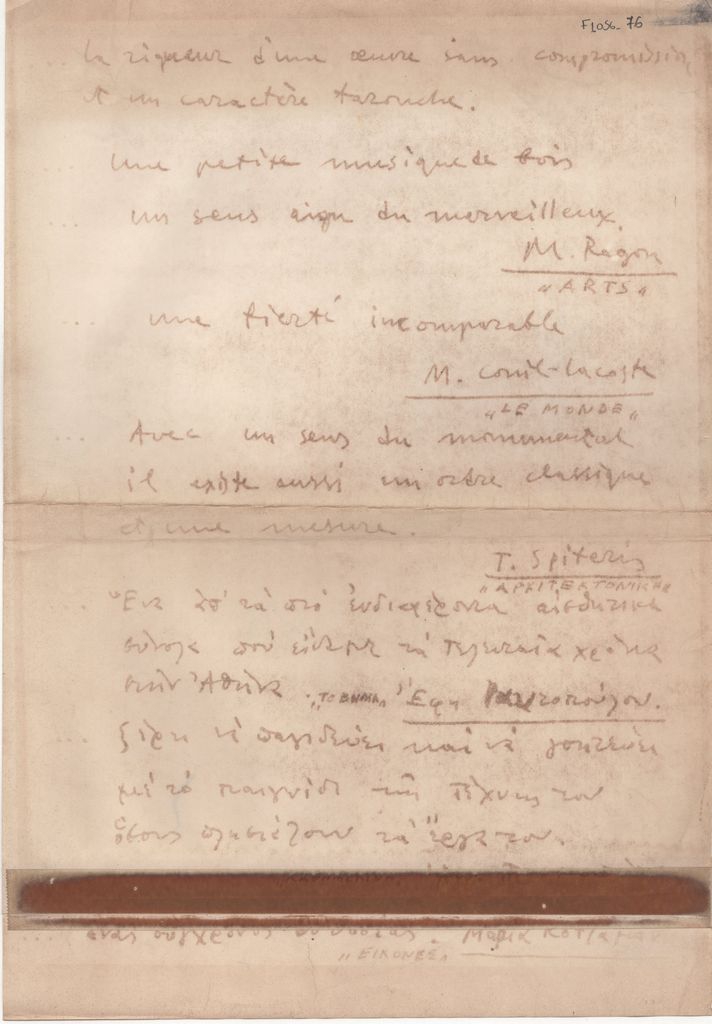 F1056_76
... la rigueur d'une œuvre sans compromission
et un caractère farouche.
... une petite musique de bois
... un sens aigu du merveilleux.
M. Ragon
"ARTS"
... une fierté incomparable
M. Conil-Lacoste
"LE MONDE"
... Avec un sens du monumental
il existe aussi un ordre classique
et une mesure.
T. Spiteris
"ΑΡΧΙΤΕΚΤΟΝΙΚΗ"
... Ἕνα ἀπ' τὰ πιό ἐνδιαφέροντα αἰσθητικά
σύνολα πού εἴδαμε τά τελευταῖα χρόνια
στήν Ἀθήνα "ΤΟ ΒΗΜΑ" Ἔφη
... ξέρει νά παγιδεύει καί νά γοητεύει
μέ τό παιγνίδι τῆς τέχνης του
ὅσους πλησιάζουν τά ἔργα του.
... ἕνας σύγχρονος Μαρία
"ΕΙΚΟΝΕΣ"